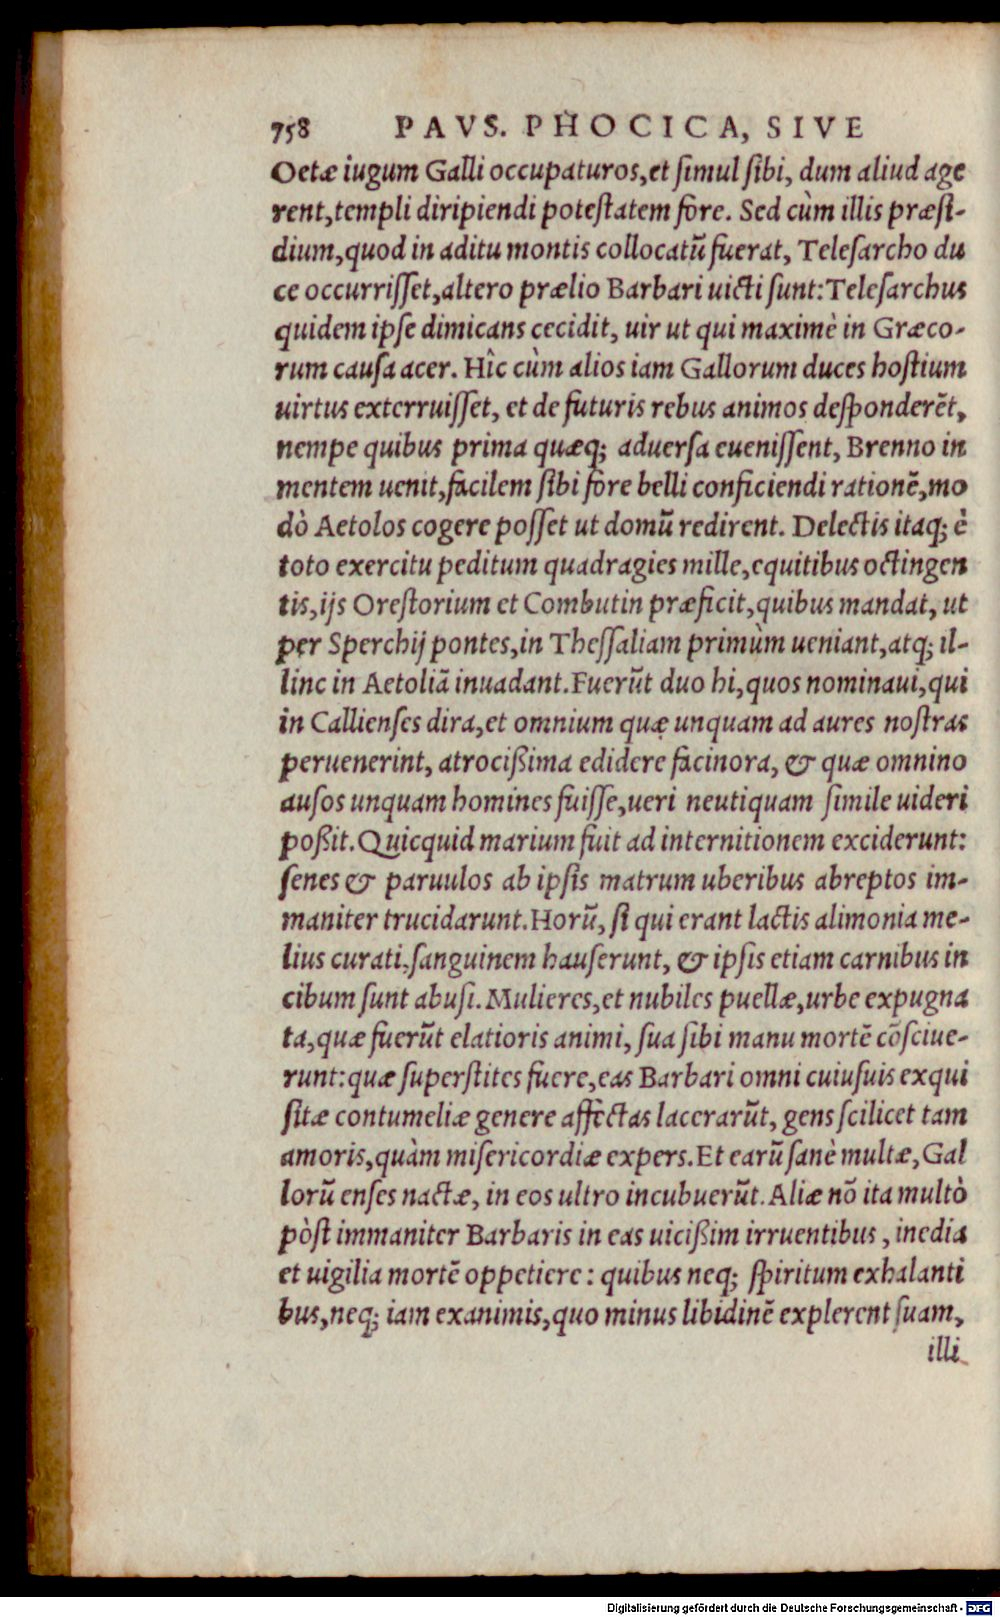 758 PAVS. PHOCICA, SIVE
Oetæ iugum Galli occupaturos, et ſimul ſibi, dum aliud age
rent, templi diripiendi poteſtatem fore. Sed cùm illis præſi-
dium, quod in aditu montis collocatū fuerat, Teleſarcho du
ce occurriſſet, altero prælio Barbari uicti ſunt: Teleſarchus
quidem ipſe dimicans cecidit, uir ut qui maximè in Græco-
rum cauſa acer. Hîc cùm alios iam Gallorum duces hoſtium
uirtus exterruiſſet, et de futuris rebus animos deſponderēt,
nempe quibus prima quæq; aduerſa eueniſſent, Brenno in
mentem uenit, facilem ſibi fore belli conficiendi rationē, mo
dò Aetolos cogere poſſet ut domū redirent. Delectis itaq; è
toto exercitu peditum quadragies mille, equitibus octingen
tis, ijs Oreſtorium et Combutin præficit, quibus mandat, ut
per Sperchij pontes, in Theſſaliam primùm ueniant, atq; il-
linc in Aetoliā inuadant. Fuerūt duo hi, quos nominaui, qui
in Callienſes dira, et omnium quæ unquam ad aures noſtras
peruenerint, atrocißima edidere facinora, & quæ omnino
auſos unquam homines fuiſſe, ueri neutiquam ſimile uideri
poßit. Quicquid marium fuit ad internitionem exciderunt:
ſenes & paruulos ab ipſis matrum uberibus abreptos im-
maniter trucidarunt. Horū, ſi qui erant lactis alimonia me-
lius curati, ſanguinem hauſerunt, & ipſis etiam carnibus in
cibum ſunt abuſi. Mulieres, et nubiles puellæ, urbe expugna
ta, quæ fuerūt elatioris animi, ſua ſibi manu mortē cōſciue-
runt: quæ ſuperſtites fuere, eas Barbari omni cuiuſuis exqui
ſitæ contumeliæ genere affèctas lacerarūt, gens ſcilicet tam
amoris, quàm miſericordiæ expers. Et earū ſanè multæ, Gal
lorū enſes nactæ, in eos ultro incubuerūt. Aliæ nō ita multò
pòſt immaniter Barbaris in eas uicißim irruentibus, inedia
et uigilia mortē oppetiere: quibus neq; ſpiritum exhalanti
bus, neq; iam exanimis, quo minus libidinē explerent ſuam,
illi
Digitalisierung gefördert durch die Deutsche Forschungsgemeinschaft - DFG